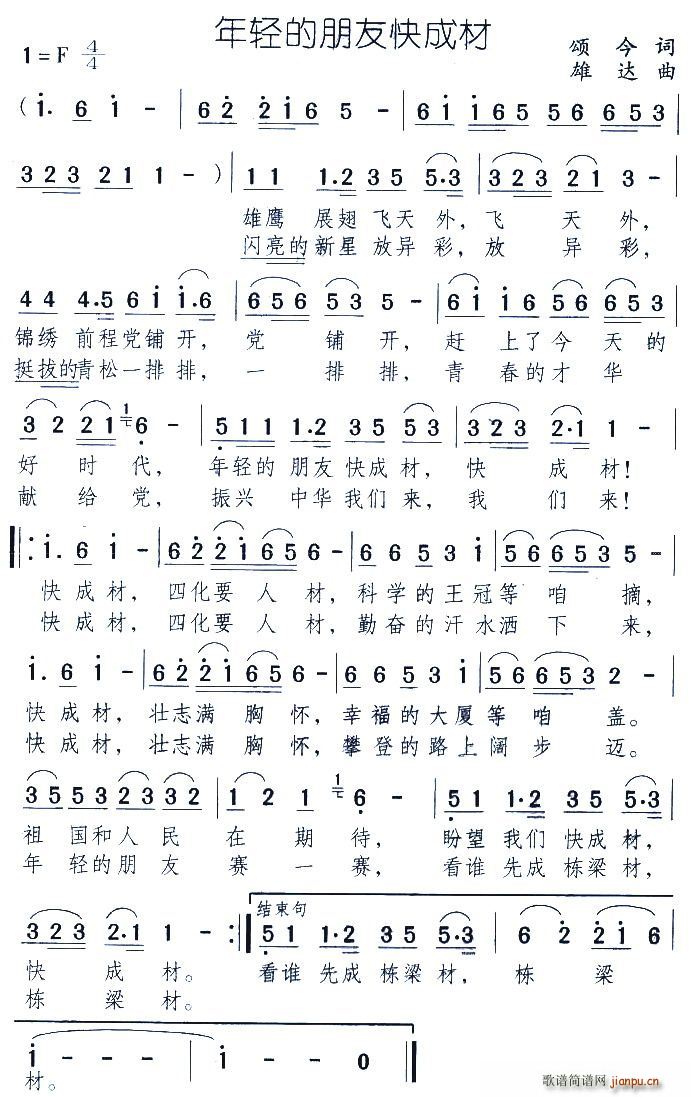 年轻的朋友快成材
1=F 4/4
颂今词
雄达曲
(i. 6 i - | 62 2i6 5 - | 6i i65 56 653 |
323 21 1 - ) | 11 1.2 35 5.3 | 323 21 3 - |
雄鹰 展翅飞天外,飞 天外,
闪亮的新星放异彩,放 异彩,
44 4.5 6i i.6 | 656 53 5 - | 6i 656 56 653 |
锦绣 前程党铺开,党 铺开,赶上了今天的
挺拔的青松一排排,一 排排,青春的才华
3 2 21 6 - | 511 1.2 35 53 | 323 2.1 1 - |
好时代,年轻的朋友快成材,快成材!
献给党,振兴中华我们来,我们来!
i. 6 i - | 62 2i 65 6 - | 66 653 3 i | 56 653 5 - |
快成材,四化要人材,科学的王冠等咱摘,
快成材,四化要人材,勤奋的汗水洒下来,
i. 6 i - | 62 2i 65 6 - | 66 653 5 i | 56 653 2 - |
快成材,壮志满胸怀,幸福的大厦等咱盖。
快成材,壮志满胸怀,攀登的路上阔步迈。
35 53 23 32 | 1 2 1 6 - | 51 1.2 35 5.3 |
祖国和人民在期待,盼望我们快成材,
年轻的朋友赛一赛,看谁先成栋梁材,
结束句
323 2.1 1 - :| 51 1.2 35 5.3 | 6 2 2i 6 |
快成材。看谁先成栋梁材,栋梁
栋梁材。
i - - - | i - - 0 ‖
材。
歌谱简谱网 jianpu.cn